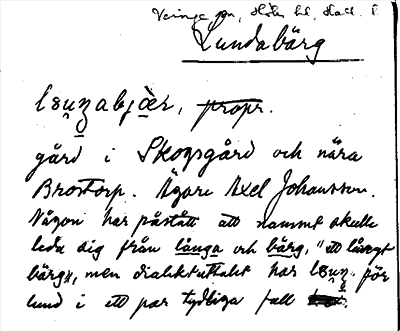 Veinge sn, Höks hd, Hall. l.
Lundabärg
lsu̯nabjær, propr.
gård i Skogsgård och nära
Brostorp. Ägare Axel Johansson.
Någon har påstått att namnet skulle
leda sig från långa och bärg, "ett långt
bärg", men dialektuttalet har lsun för
lund i ett par tydliga fall